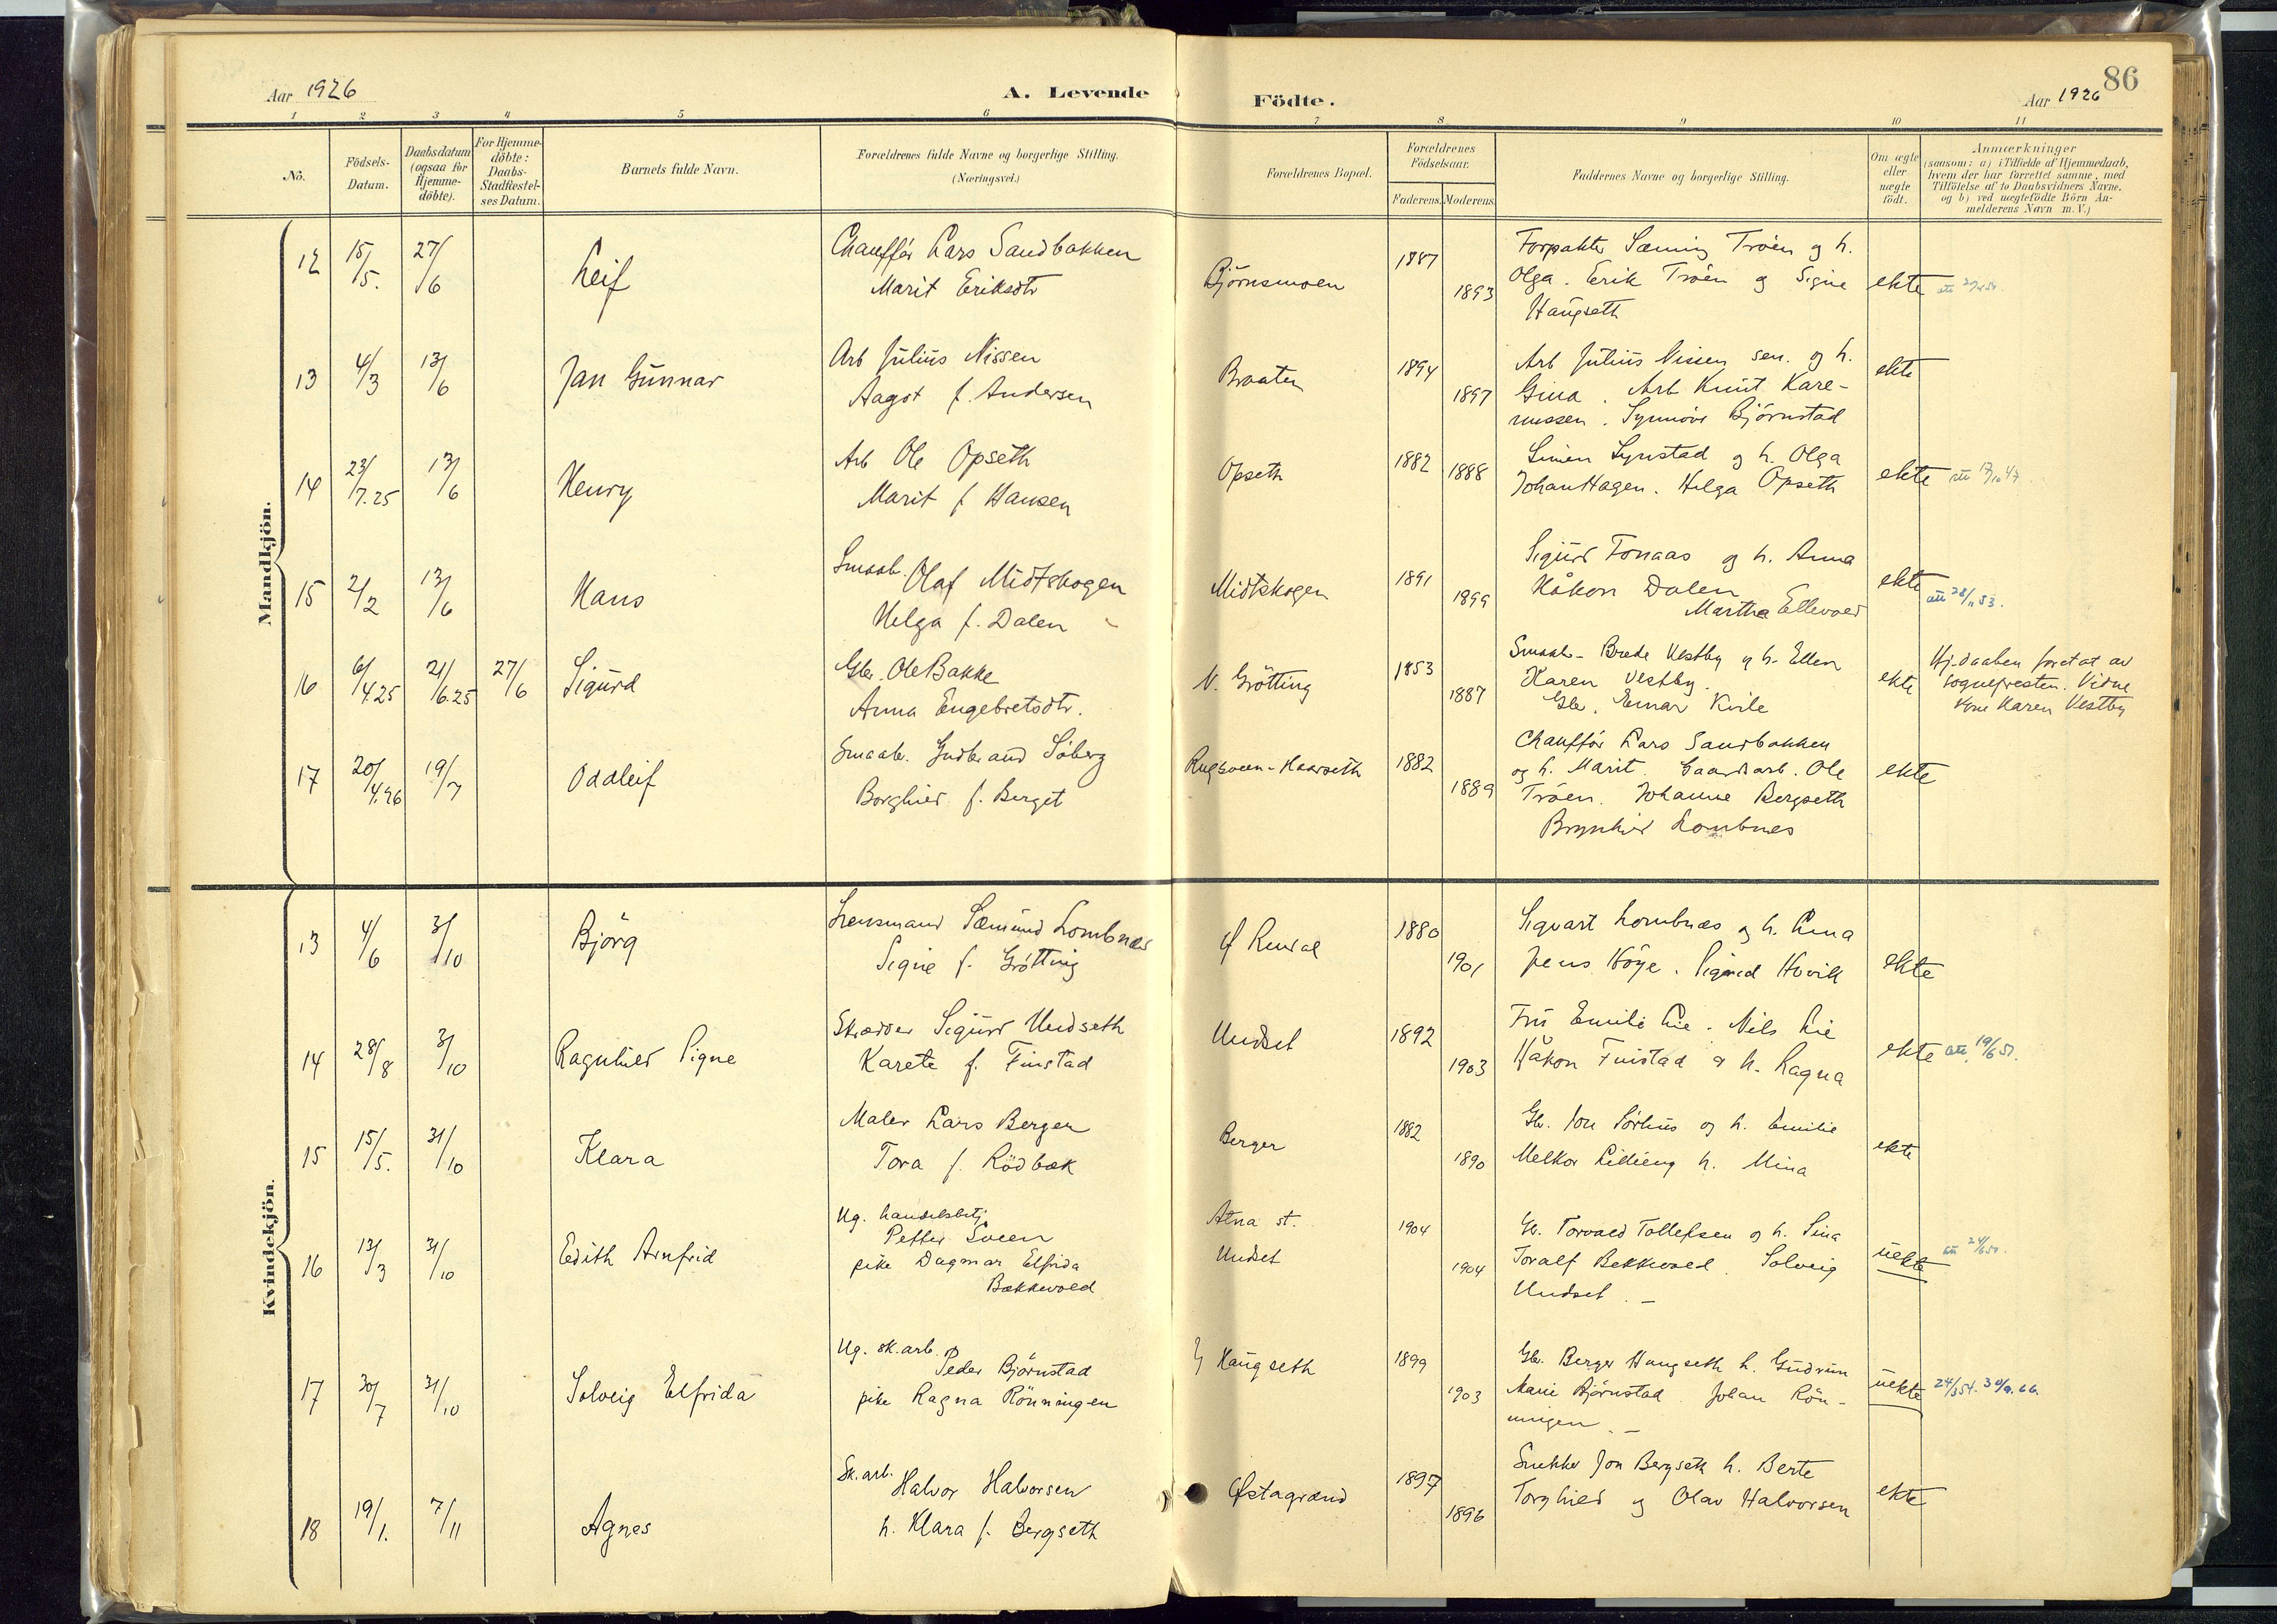 86
Aar 1926
A. Levende Födte.
Aar 1926
1 2 3 4 5 6 7 8 9 10 11
No.
Födsels-Datum.
Daabsdatum (ogsaa for Hjemme-döbte).
For Hjemme-döbte: Daabs-Stadfæstel-ses Datum.
Barnets fulde Navn.
Forældrenes fulde Navne og borgerlige Stilling.
(Næringsvei.)
Forældrenes Bopæl.
Forældrenes Födselsaar.
Faderens. Moderens.
Faddernes Navne og borgerlige Stilling.
Om ægte eller uægte födt.
Anmærkninger
(saasom: a) i Tilfælde af Hjemmedaab,
hvem der har forrettet samme, med
Tilföielse af to Daabsvidners Navne.
og b) ved uægtefödte Börn An-
melderens Navn m. V.)
Mandkjön.
12 15/5. 27/6 Leif
Chauffør Lars Sandbakken
Marit Eriksdtr
Bjørnsmoen 1887 1893
Forpakter Sæming Trøen og h.
Olga. Erik Trøen og Signe
Haugseth
ekte
13 4/3 13/6 Jan Gunnar
Arb Julius Nissen
Aagot f. Andersen
Braaten 1894 1897
Arb Julius Nissen sen. og h.
Gina. Arb Knut Kare-
nussen. Synnøve Bjørnstad
ekte
14 23/7.25 13/6 Henry
Arb Ole Opseth
Marit f Hansen
Opseth 1882 1888
Simen Synstad og h. Olga
Johan Hagen. Helga Opseth
ekte att 17/10 47
15 2/2 13/6 Hans
Smaabr. Olaf Midtskogen
Helga f. Dalen
Midtskogen 1891 1899
Sigurd Fonaas og h. Anna
Håkon Dalen
Martha Ellevold
ekte att 28/11 53.
16 6/4.25 21/6.25 27/6 Sigurd
Gbr. Ole Bakke
Anna Engebretsdtr.
N. Grötting 1853 1887
Smaabr. Brede Vestby og h. Ellen
Karen Vestby.
Gbr. Einar Kvile
ekte
Hj.daaben foretat av
sognepresten. Vidne
Karen Vestby
17 20/4.26 19/7 Oddleif
Smaabr. Gudbrand Söberg
Borghild f. Berget
1882 1889
Chauffør Lars Sandbakken
og h. Marit. Gaardsarb. Ole
Trøen. Johanne Bergseth
Brynhild Lombnes
ekte
Kvindekjön.
13 4/6 3/10 Bjørg
Lensmand Sæmund Lombnæs
Signe f. Grøtting
1880 1901
Sigvart Lombnæs og h.
Jens Høye. Sigrid Hovik
ekte
14 28/8 3/10 Ragnhild Signe
Skrædder Sigurd Undseth
Karete f. Finstad
Undset 1892 1903
Fru Emili Lie. Nils Lie
Håkon Finstad og h. Ragna
ekte att. 19/6 51.
15 15/5. 31/10 Klara
Maler Lars Berger
Tora f. Rödbæk
Berger 1882 1890
Gbr. Jon Sørhus og h. Emilie
Melkor Lillieng h. Mina
ekte
16 13/3 31/10 Edith Arnfrid
Ug. handelsbetj.
Petter Sveen
pike Dagmar Elfrida
Bækkevold
Atna st.
Undset
1904 1904
Gbr. Torvald Tollefsen og h. Sina
Toralf Bekkevold. Solveig
Undset. –
uekte
17 30/7 31/10 Solveig Elfrida
Ug. sk.arb.
Peder Bjørnstad
pike Ragna Rönningen
Haugseth 1899 1903
Gbr. Berger Haugseth h. Gudrun
Marie Bjørnstad. Johan Rön-
ningen. –
uekte 24/3 54. 30/9. 66.
18 19/1. 7/11 Agnes
Sk.arb.
Halvor Halvorsen
h. Klara f. Bergseth
Østagrænd 1897 1896
Snekker Jon Bergseth h. Berte
Torghild og Olav Halvorsen
ekte